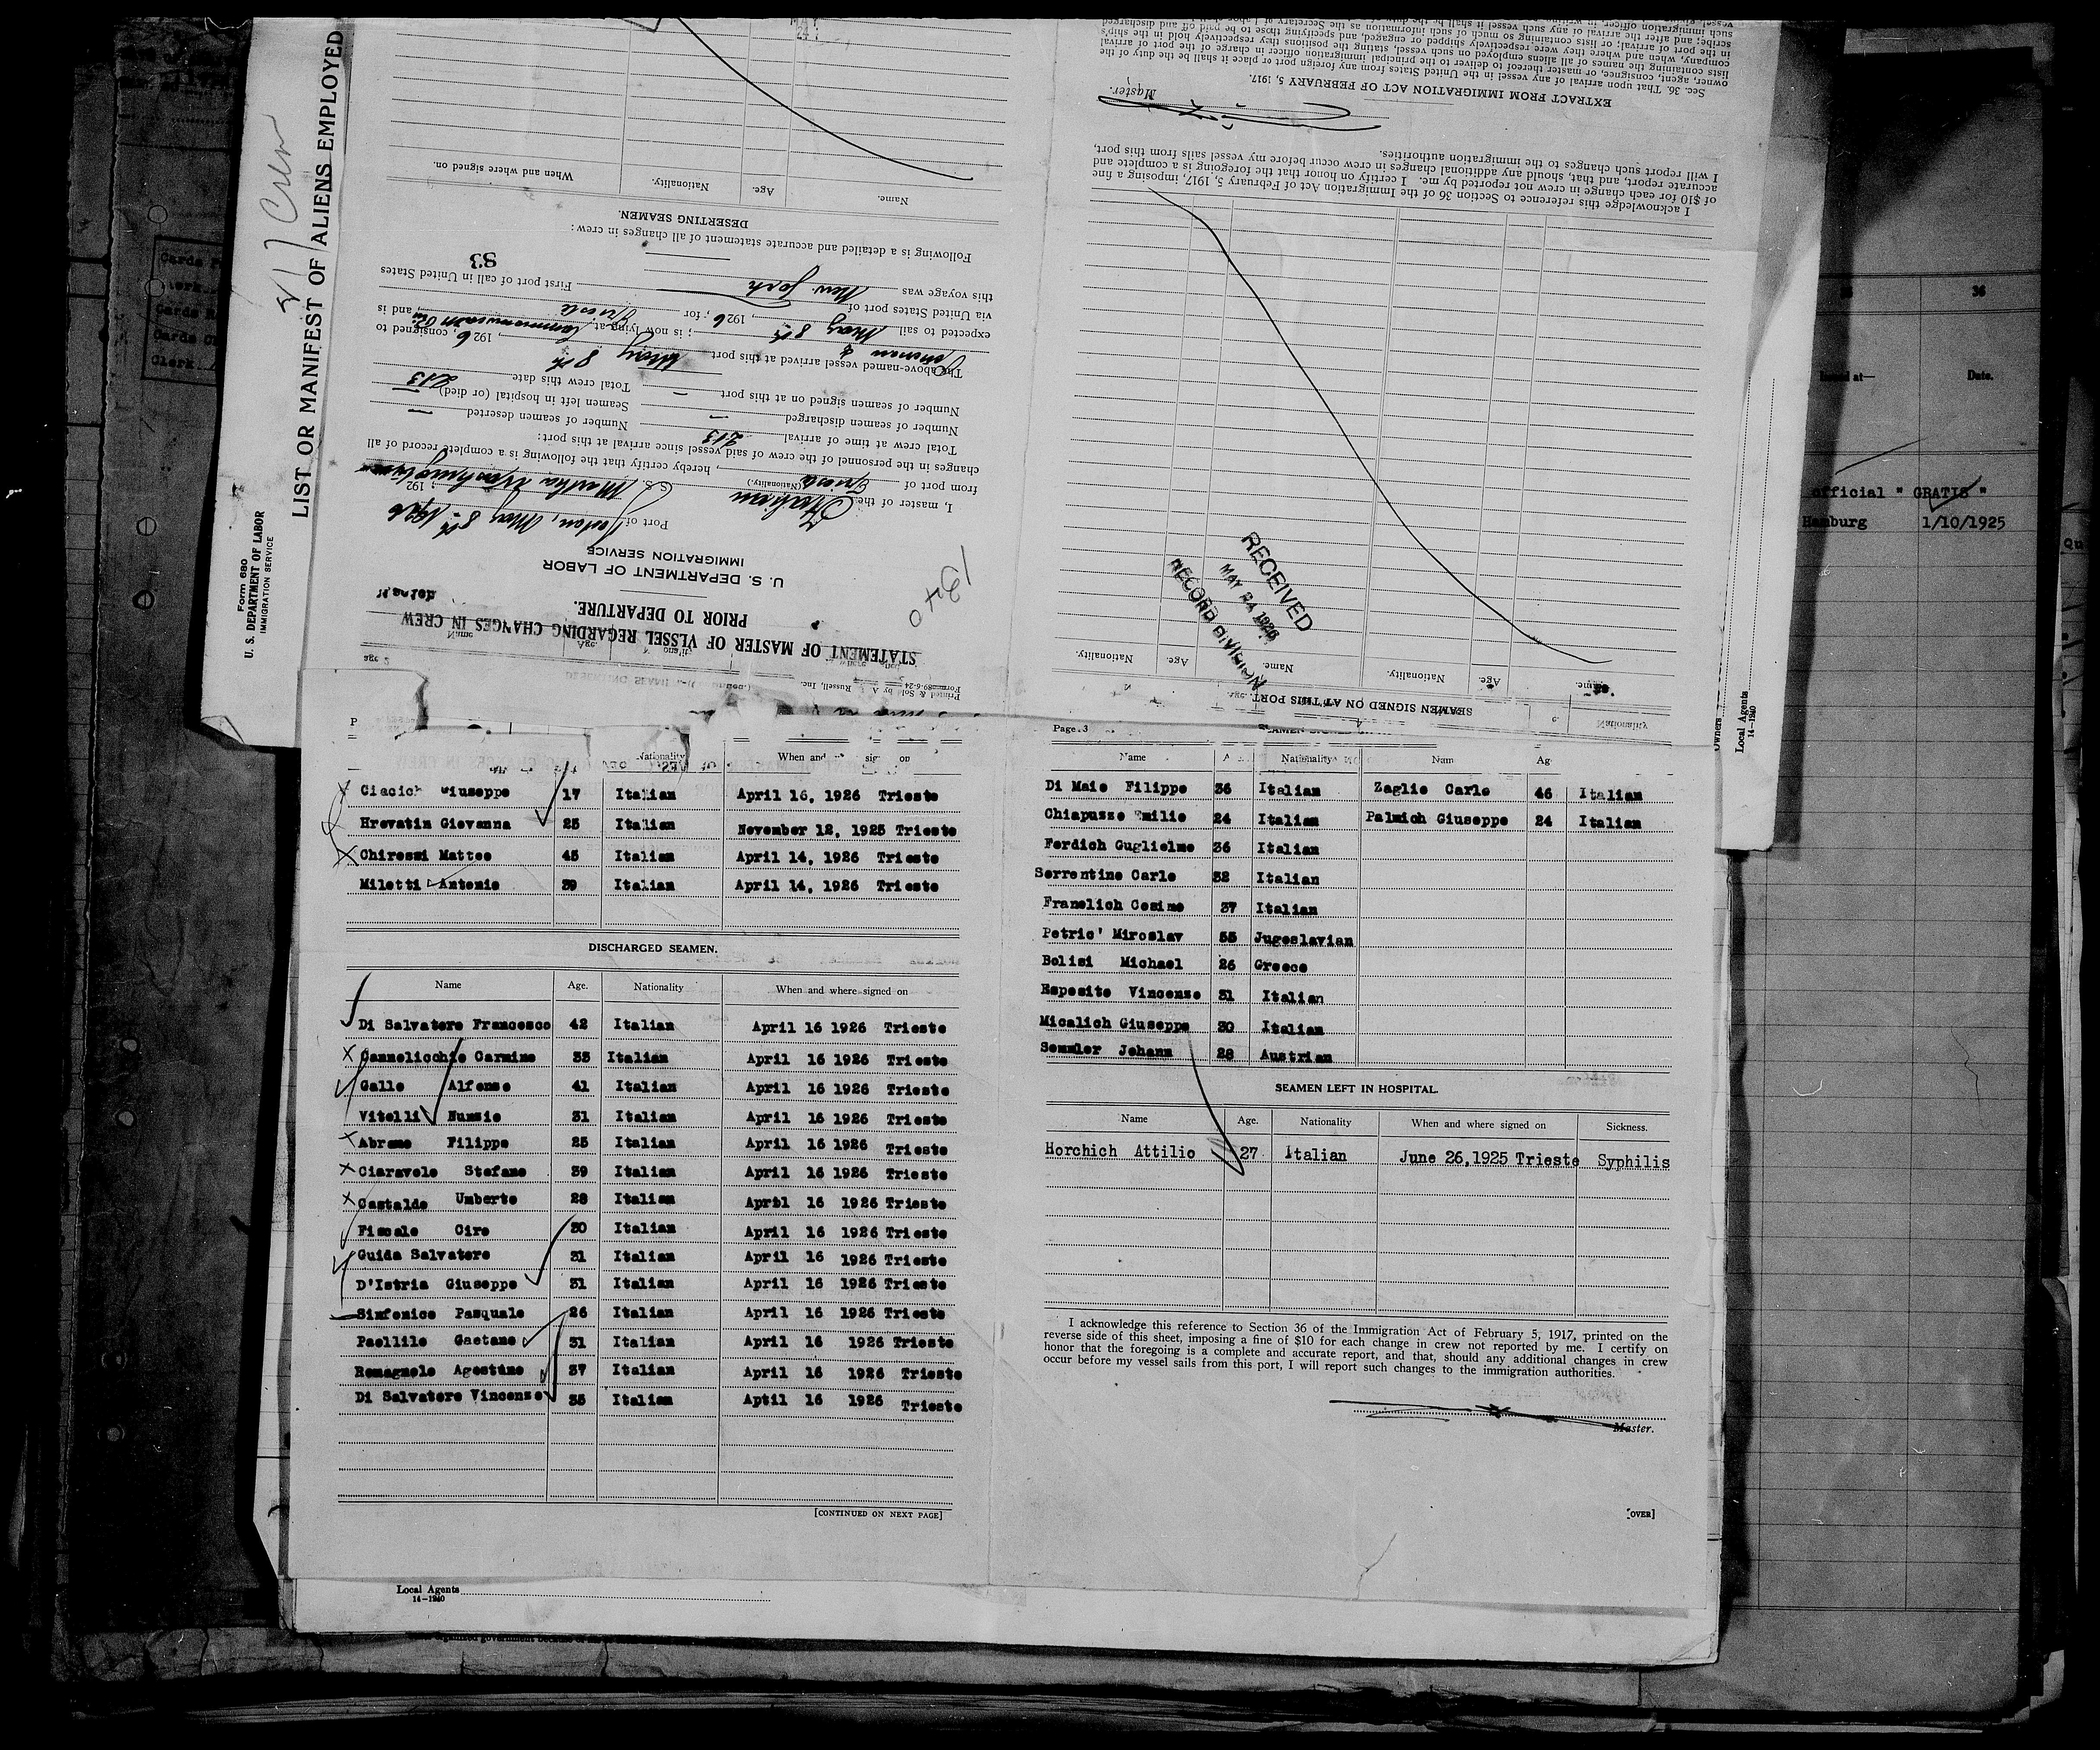 LIST OR MANIFEST OF ALIENS EMPLOYED
Crew
Form 680
U. S. DEPARTMENT OF LABOR
IMMIGRATION SERVICE
STATEMENT OF MASTER OF VESSEL REGARDING CHANGES IN CREW
PRIOR TO DEPARTURE.
U. S. DEPARTMENT OF LABOR
IMMIGRATION SERVICE
Port of Boston, May 8th 1926
I, master of the Italian (Nationality.) S.S. Martha Washington ; 192
from port of Trieste, hereby certify that the following is a complete record of all
changes in the personnel of the crew of said vessel since arrival at this port:
Total crew at time of arrival 213 Number of seamen deserted —
Number of seamen discharged — Seamen left in hospital (or died)
Number of seamen signed on at this port — Total crew this date 213
The above-named vessel arrived at this port May 8th, 1926, consigned to
; is now lying at Commonwealth Pier and is
expected to sail May 8th, 1926, for Trieste
via United States port of
this voyage was New York First port of call in United States
83
Following is a detailed and accurate statement of all changes in crew:
DESERTING SEAMEN.
Name. Age. Nationality. When and where signed on.
1340
SEAMEN SIGNED ON AT THIS PORT
Name. Age. Nationality. Name. Age. Nationality.
RECEIVED
MAY 24 1926
RECORD DIVISION
I acknowledge this reference to Section 36 of the Immigration Act of February 5, 1917, imposing a fine
of $10 for each change in crew not reported by me. I certify on honor that the foregoing is a complete and
accurate report, and that, should any additional changes in crew occur before my vessel sails from this port,
I will report such changes to the immigration authorities.
Master.
EXTRACT FROM IMMIGRATION ACT OF FEBRUARY 5, 1917.
Sec. 36. That upon arrival of any vessel in the United States from any foreign port or place it shall be the duty of the
owner, agent, consignee, or master thereof to deliver to the principal immigration officer in charge of the port of arrival
lists containing the names of all aliens employed on such vessel, stating the positions they respectively hold in the ship's
company, when and where they were respectively shipped or engaged, and specifying those to be paid off and discharged
in the port of arrival; or lists containing so much of such information as the Secretary of Labor shall
Nationality When and sig on
Ciacich Giuseppe 17 Italian April 16, 1926 Trieste
Hrovatin Giovanna 25 Italian November 12, 1925 Trieste
Chirossi Matteo 45 Italian April 14, 1926 Trieste
Miletti Antonio 39 Italian April 14, 1926 Trieste
DISCHARGED SEAMEN.
Name Age. Nationality When and where signed on
Di Salvatore Francesco 42 Italian April 16 1926 Trieste
Cannelicchio Carmine 33 Italian April 16 1926 Trieste
Gallo Alfonso 41 Italian April 16 1926 Trieste
Vitelli Nunzio 31 Italian April 16 1926 Trieste
Abramo Filippo 25 Italian April 16 1926 Trieste
Ciaravolo Stefano 39 Italian April 16 1926 Trieste
Castaldo Umberto 28 Italian April 16 1926 Trieste
Fiscale Ciro 30 Italian April 16 1926 Trieste
Guida Salvatore 31 Italian April 16 1926 Trieste
D'Istria Giuseppe 31 Italian April 16 1926 Trieste
Sinfonico Pasquale 26 Italian April 16 1926 Trieste
Paolillo Gaetano 31 Italian April 16 1926 Trieste
Romagnolo Agostino 37 Italian April 16 1926 Trieste
Di Salvatore Vincenzo 35 Italian April 16 1926 Trieste
[CONTINUED ON NEXT PAGE]
Local Agents
14-1240
Page 3
Name Nationality Nam Ag
Di Maio Filippo 36 Italian Zaglio Carlo 46 Italian
Chiapuzzo Emilio 24 Italian Palmich Giuseppe 24 Italian
Ferdich Guglielmo 36 Italian
Sorrentino Carlo 32 Italian
Franolich Cosimo 37 Italian
Petric' Miroslav 55 Jugoslavian
Bolisi Michael 26 Greece
Esposito Vincenzo 31 Italian
Micalich Giuseppe 30 Italian
Semmler Johann 28 Austrian
SEAMEN LEFT IN HOSPITAL.
Name Age. Nationality When and where signed on Sickness.
Horchich Attilio 27 Italian June 26,1925 Trieste Syphilis
I acknowledge this reference to Section 36 of the Immigration Act of February 5, 1917, printed on the
reverse side of this sheet, imposing a fine of $10 for each change in crew not reported by me. I certify on
honor that the foregoing is a complete and accurate report, and that, should any additional changes in crew
occur before my vessel sails from this port, I will report such changes to the immigration authorities.
Master.
[OVER]
Owners
Local Agents
14-1240
36
Issued at— Date.
official " GRATIS "
Hamburg 1/10/1925